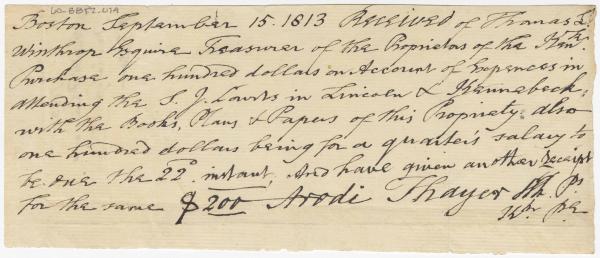 60-BB52.019
Boston September 15. 1813 Received of Thomas L.
Winthrop Esquire Treasurer of the Proprietors of the Ken.
Purchase one hundred dollars on Account of Expences in
attending the S. J. Courts in Lincoln & Kennebeck;
with the Books, Plans & Papers of this Propriety. also
one hundred dollars being for a quarter's salary to
be due the 22d instant, And have given another receipt
for the same $200 Arodi Thayer